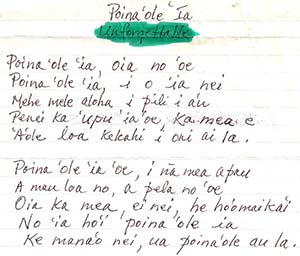 Poina 'ole 'Ia
unforgettable
Poina 'ole 'ia, oia no 'oe
Poina 'ole 'ia, i o 'ia nei
Mehe mele aloha i pili i a'u
Penei ka 'upu 'ia 'oe, ka mea e
'A'ole loa kekahi i oni ai la.
Poina 'ole 'ia 'oe, i nā mea apau
A mau loa no, a pela no 'oe
Oia ka mea, ei nei, he ho'omaikai
No 'ia ho'i poina 'ole ia
Ke mana'o nei, ua poina'ole au la.